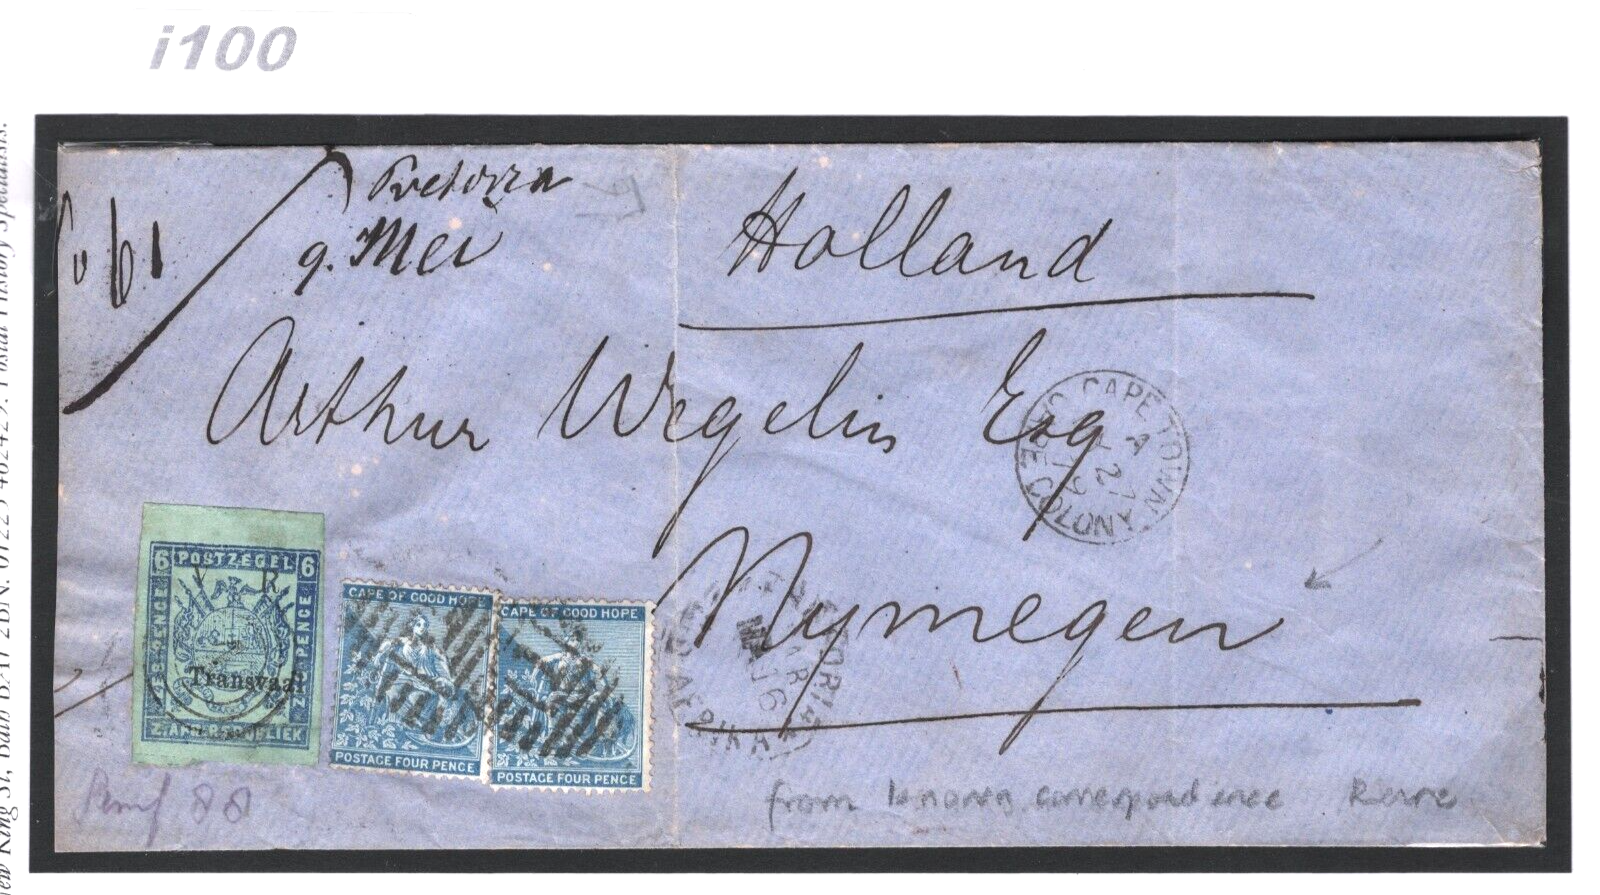 i100
Pretoria
9. Mei
Holland
Arthur Wegelin Esq
Nymegen
CAPE TOWN CAPE COLONY
A
79
6 POSTZEGEL 6
ZES PENCE
ZES PENCE
V R
Transvaal
Z. AFR. REPUBLIEK
CAPE OF GOOD HOPE
POSTAGE FOUR PENCE
CAPE OF GOOD HOPE
POSTAGE FOUR PENCE
from known correspondence
88
New King St, Bath BA1 2BN. 01225 462429. Postal History Specialists.